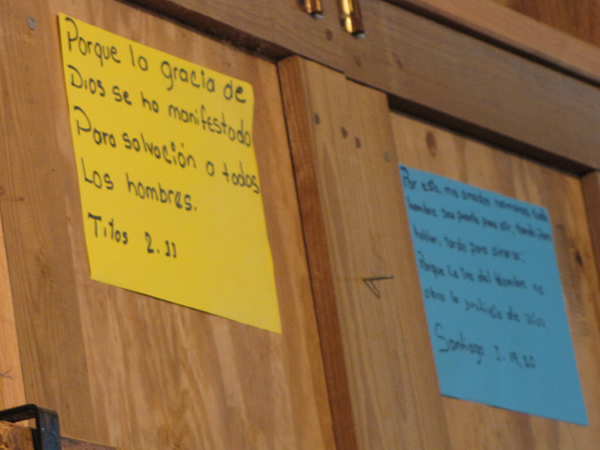 Porque la gracia de
Dios se ha manifestado
Para salvación a todos
Los hombres.
Titos 2.11
Por esto, mis amados hermanos, todo
hombre sea pronto para oír, tardo para
hablar, tardo para airarse;
Porque la ira del Hombre no
obra la justicia de Dios.
Santiago 1.19,20